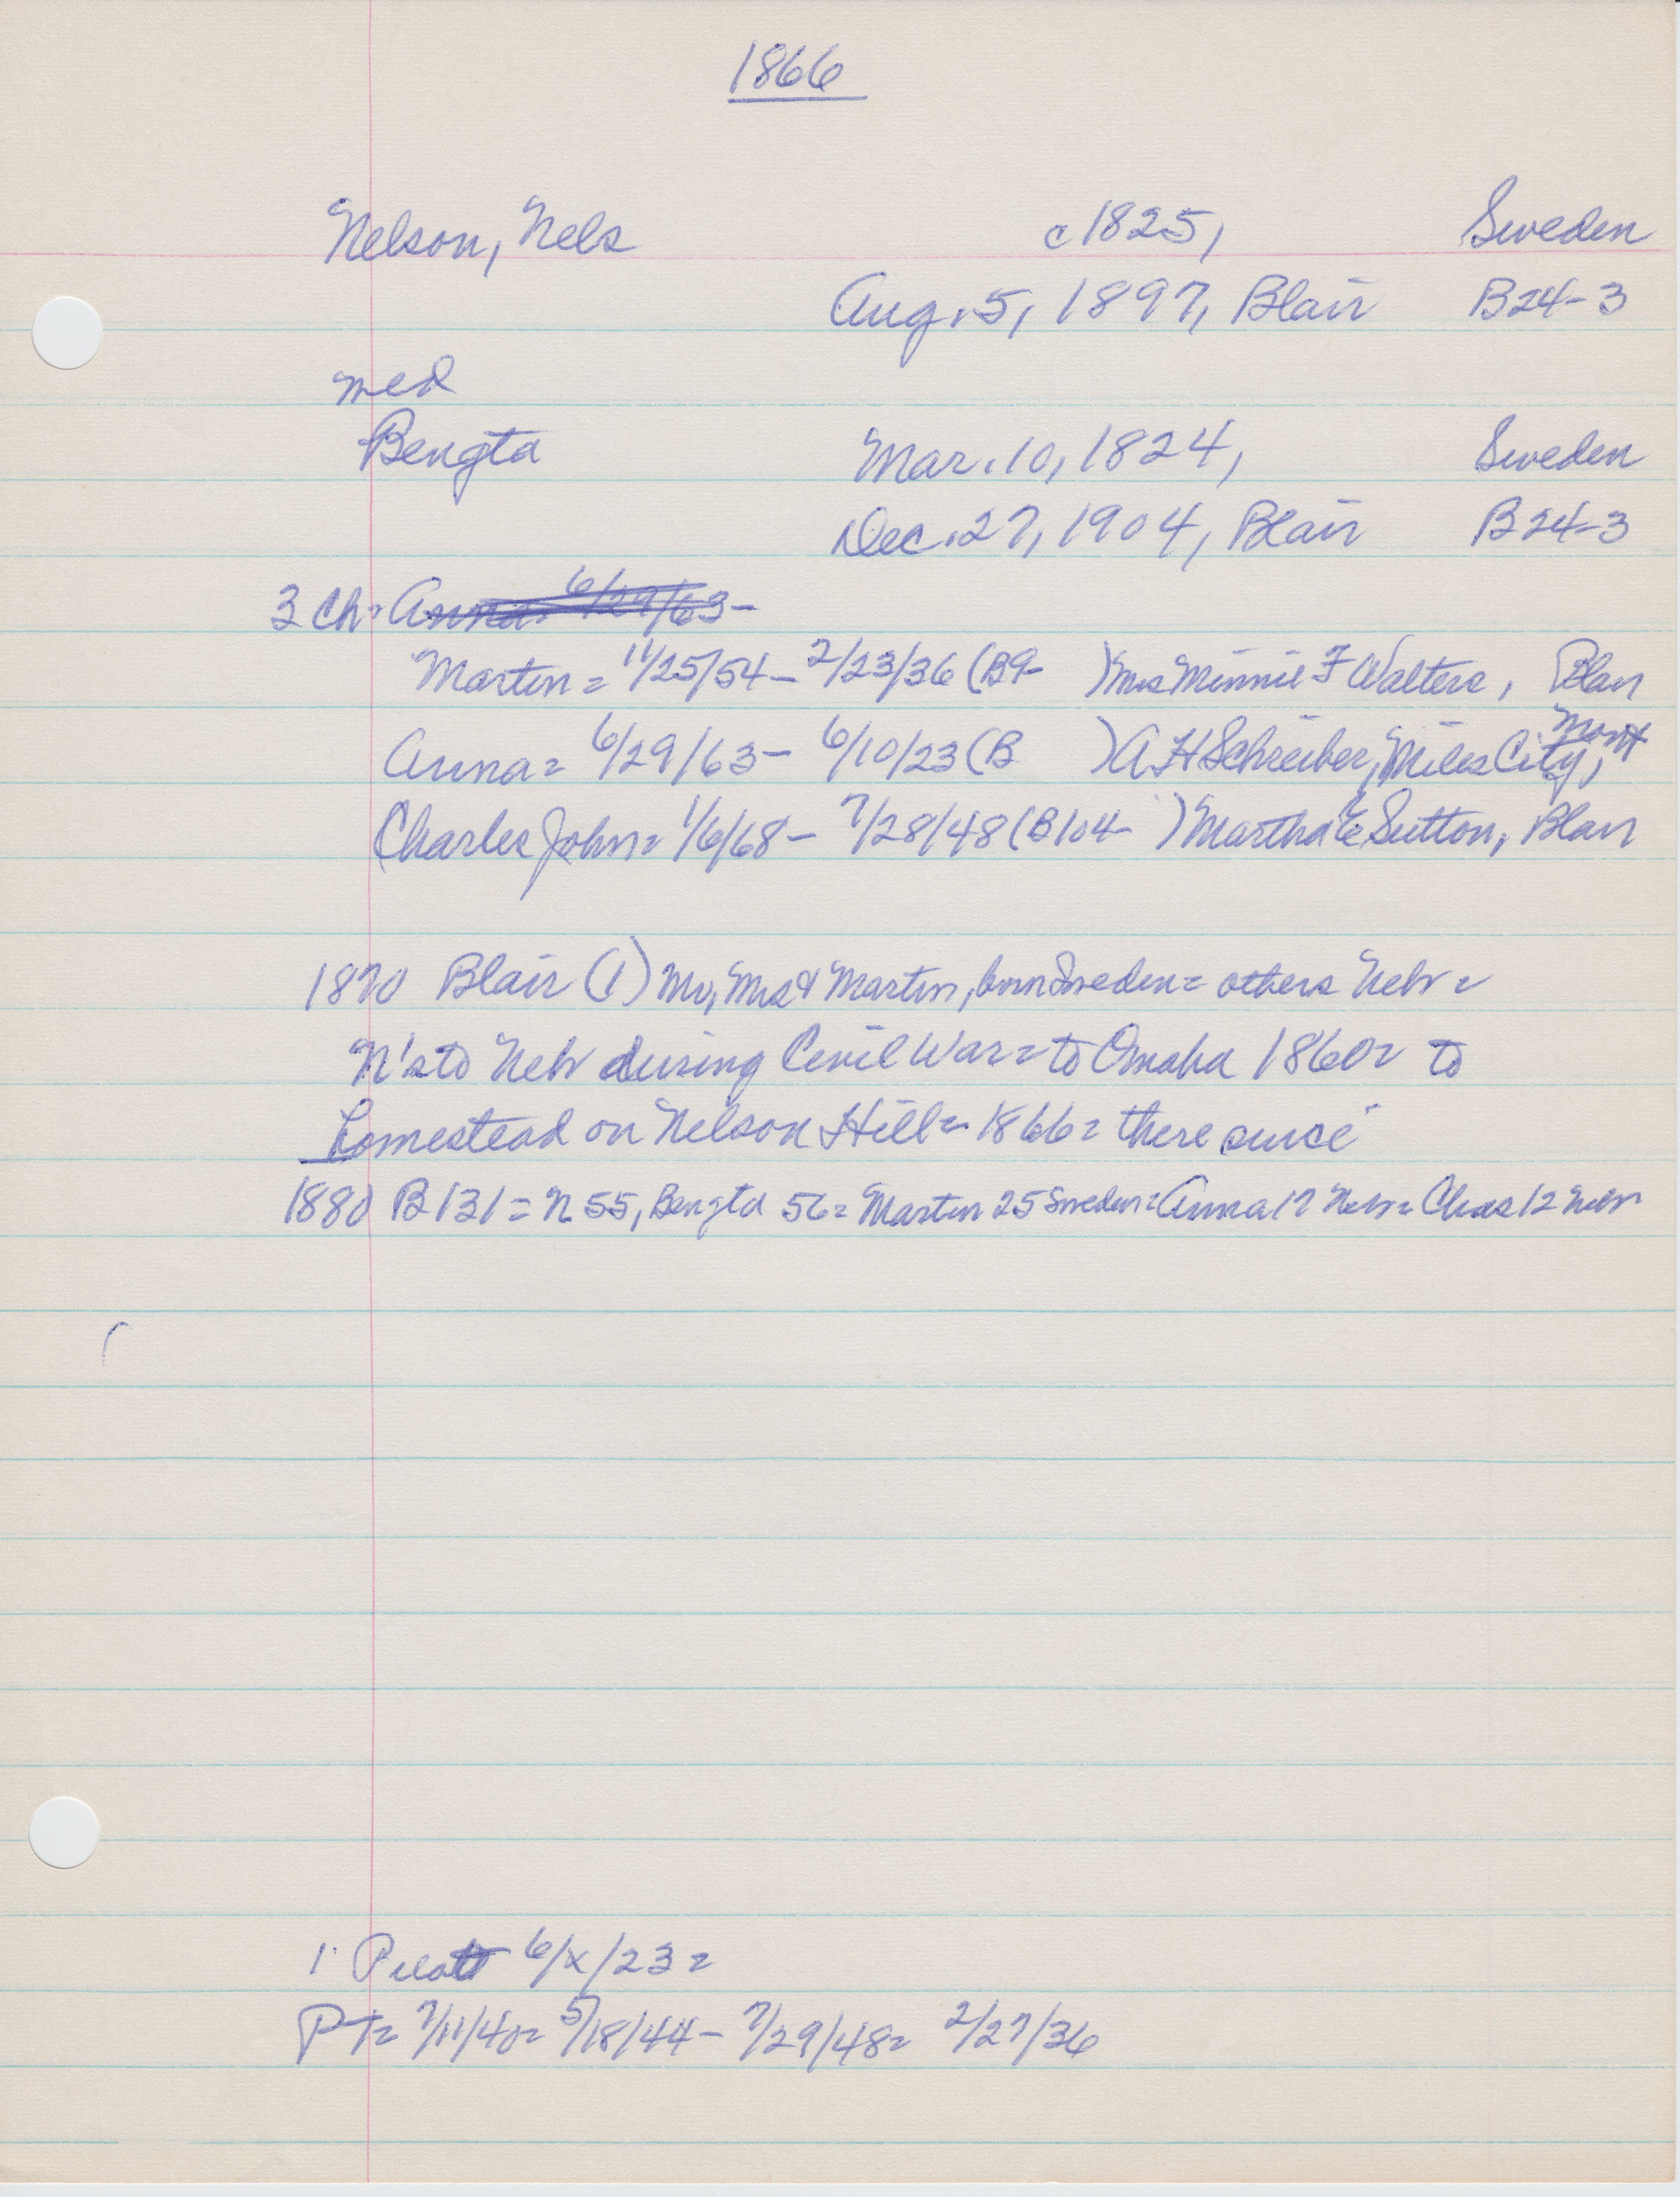 1866
Nelson, Nels c1825, Sweden
Aug. 5, 1897, Blair B24-3
med
Bengta Mar. 10, 1824, Sweden
Dec. 27, 1904, Blair B24-3
3 Ch: Anna= 6/29/63-
Martin= 11/25/54- 2/23/36 (B9- ) Mrs Minnie F Walters, Blair
Anna= 6/29/63- 6/10/23 (B ) A H Schreiber, Miles City, Mont
Charles John= 1/6/68- 7/28/48 (B104- ) Martha E Sutton, Blair
1870 Blair (1) Mr, Mrs & Martin, born Sweden= others Nebr=
N's to Nebr during Civil War= to Omaha 1860= to
homestead on Nelson Hill= 1866= there since
1880 B131= N 55, Bengta 56= Martin 25 Sweden= Anna 17 Nebr= Chas 12 Nebr
1. 6/x/23=
PT= 7/11/40= 5/18/44- 7/29/48= 2/27/36